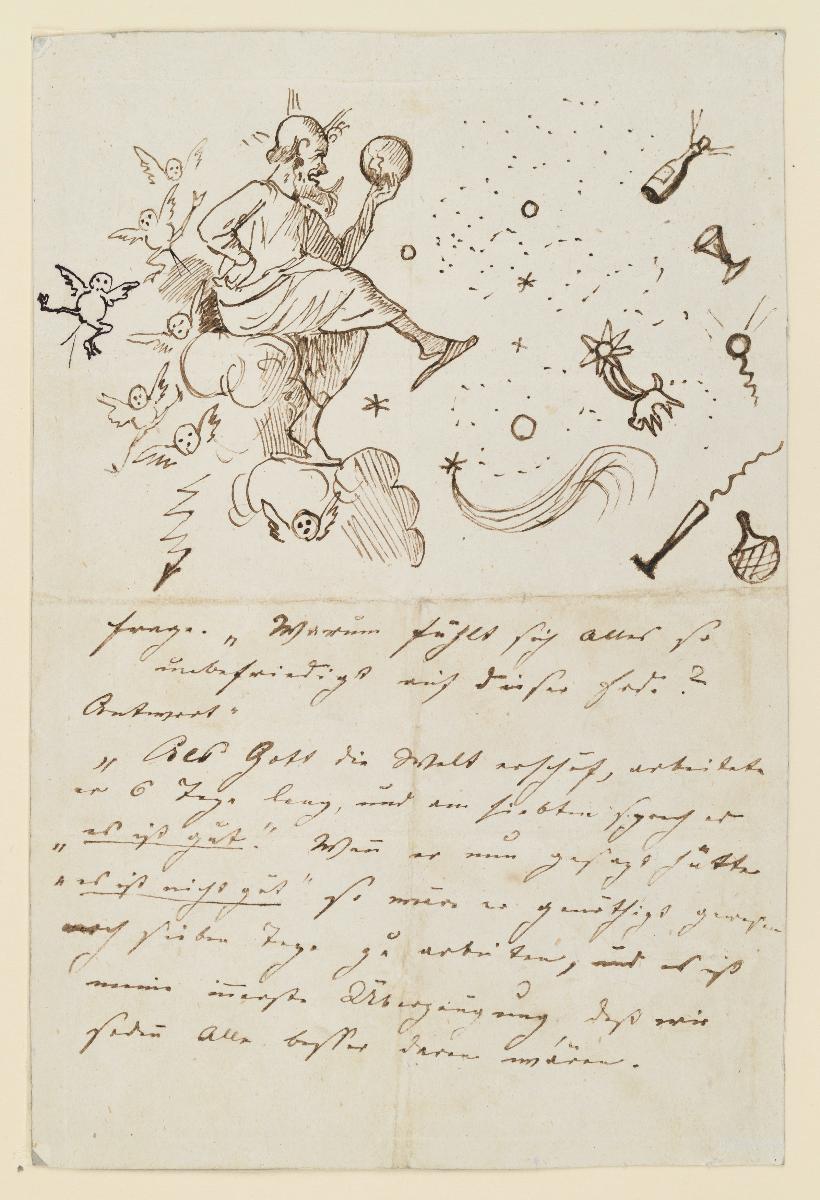 Frage. „ Warum fühlt sich Alles so
unbefriedigt auf dieser Erde ?
Antwort "
„ Als Gott die Welt erschuf, arbeitete
er 6 Tage lang, und am siebten sprach er
„ es ist gut." Wenn er nun gesagt hätte
„ es ist nicht gut" so wäre er genöthigt gewesen
noch sieben Tage zu arbeiten, und es ist
meine innerste Überzeugung daß wir
Alle besser daran wären.